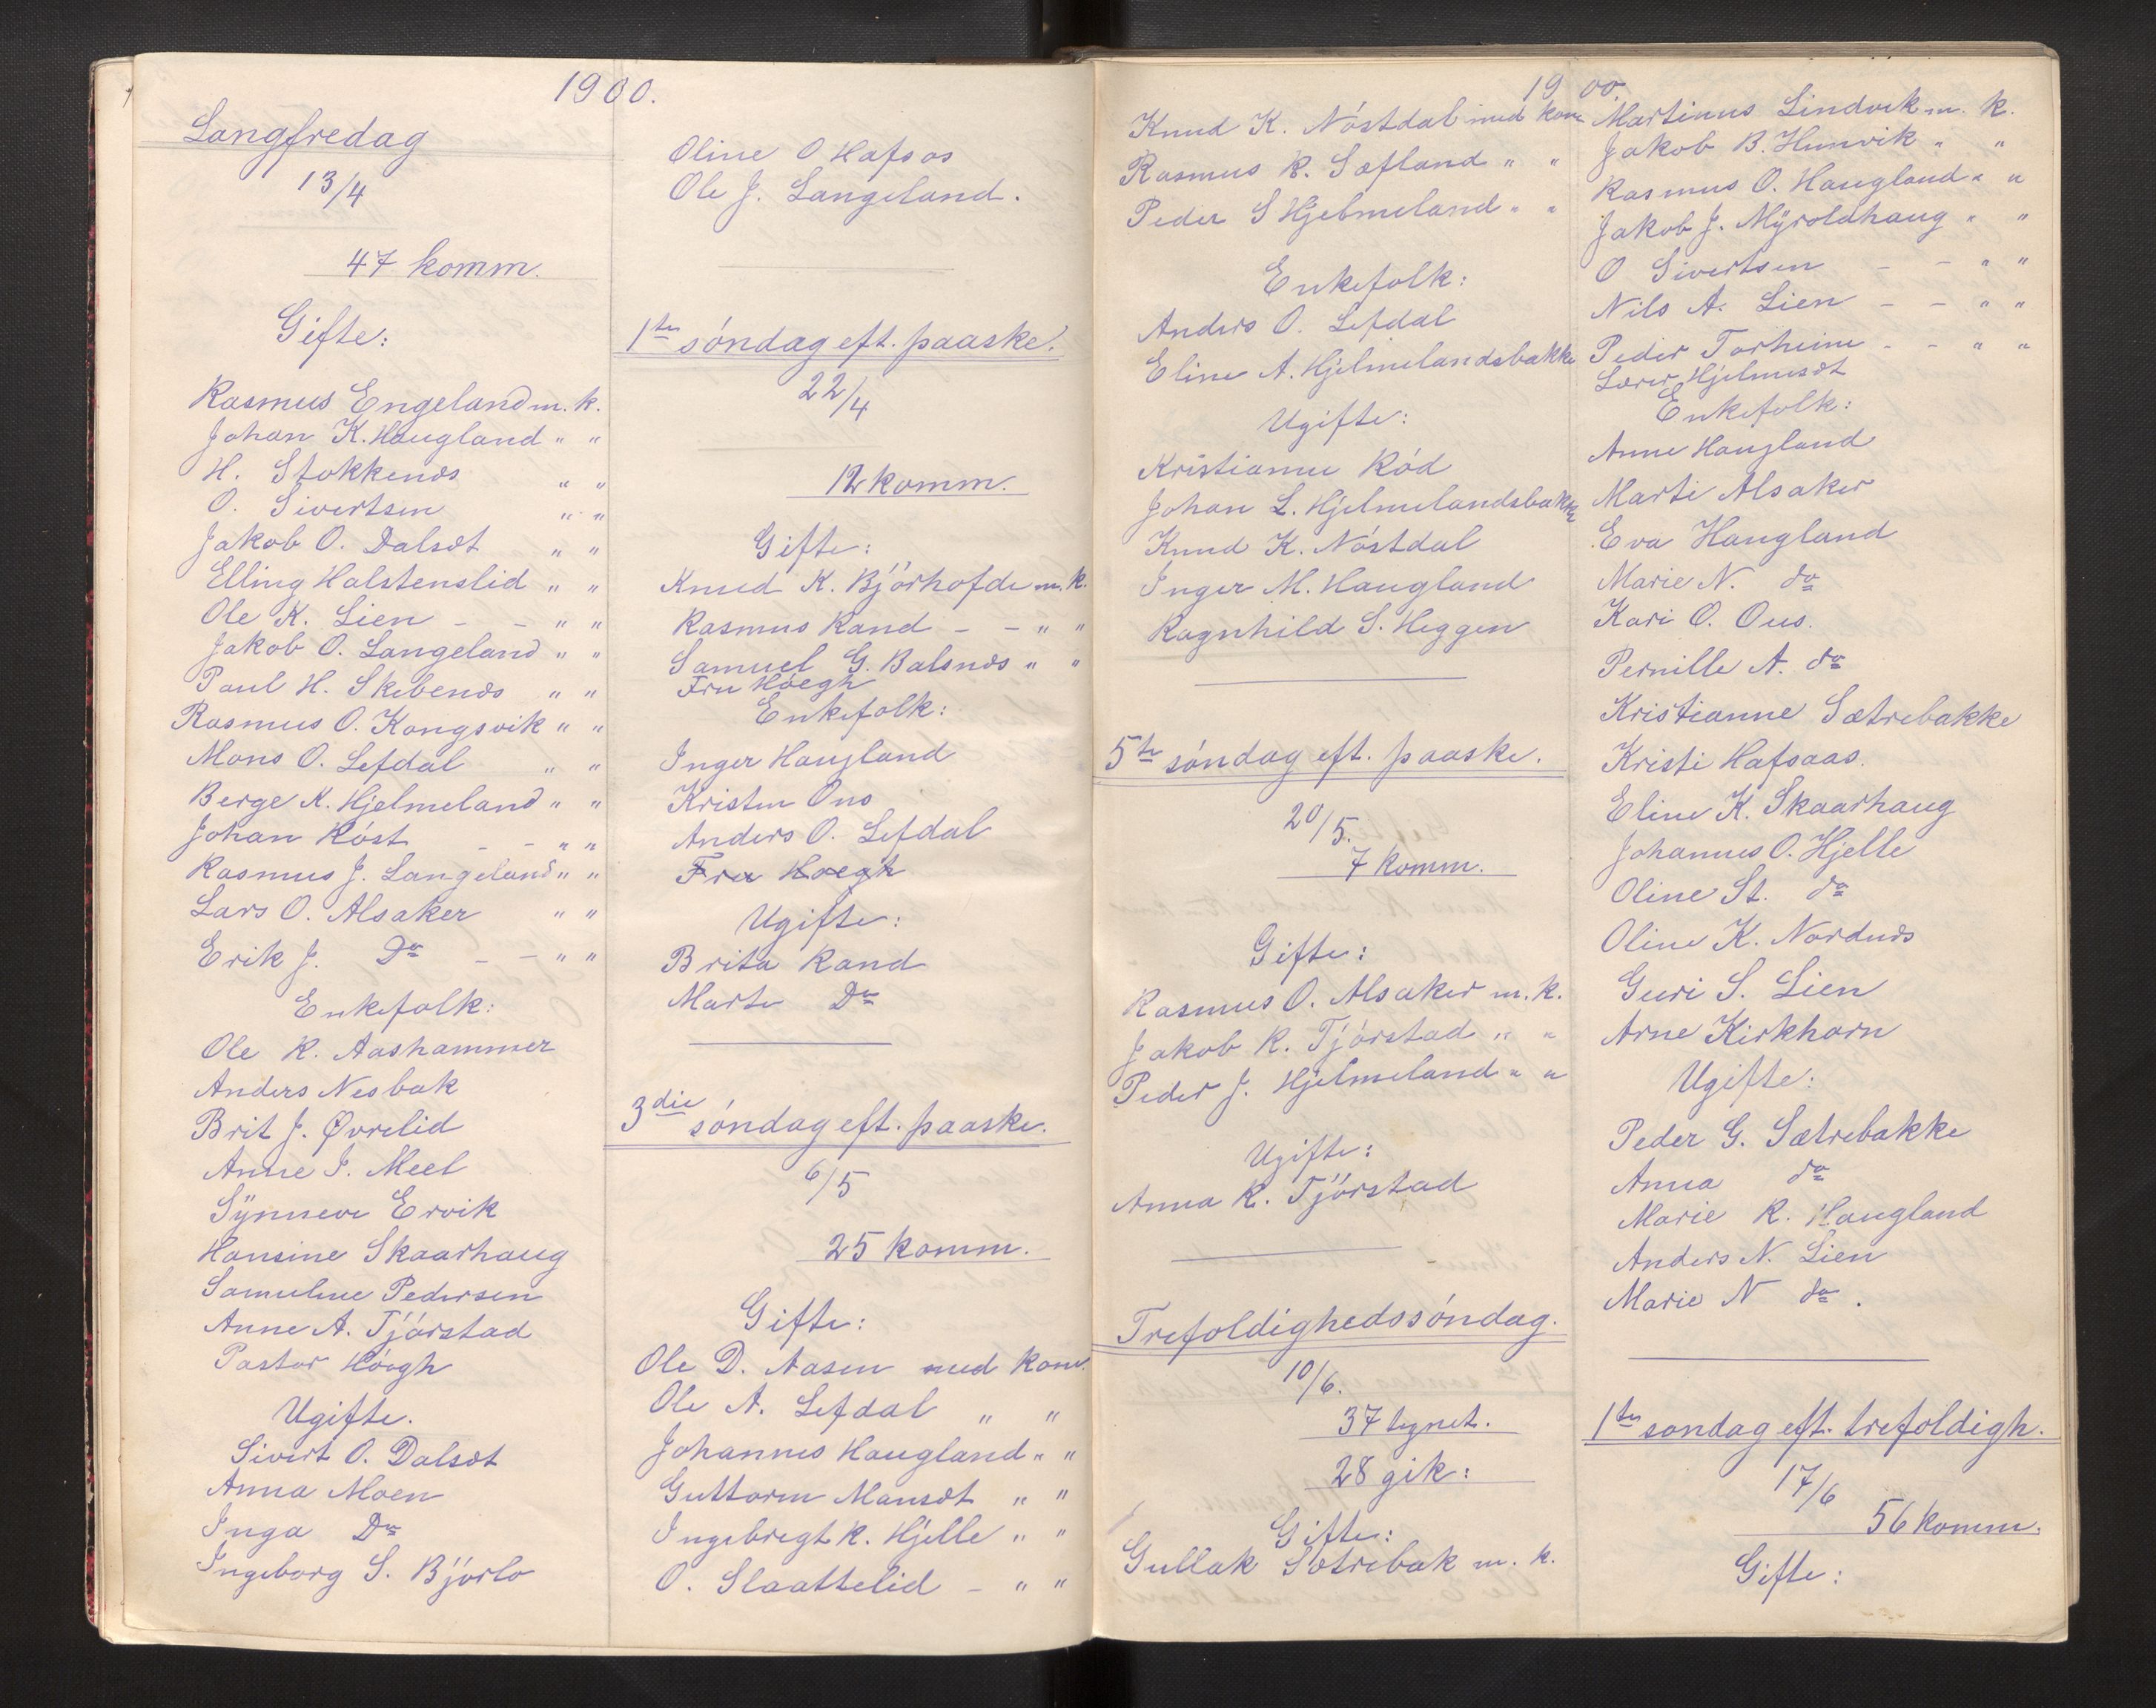 1900.
Langfredag
13/4
47 komm.
Gifte:
Rasmus Engeland m. k.
Johan K. Haugland " "
H. Stokkenæs " "
O. Sivertsen " "
Jakob O. Dalsæt " "
Elling Halstenslid " "
Ole K. Lien - - " "
Jakob O. Langeland " "
Paul H. Skibenæs " "
Rasmus O. Kongsvik " "
Mons O. Lefdal " "
Berge K. Hjelmeland " "
Johan Röst - - " "
Rasmus J. Langeland " "
Lars O. Alsaker " "
Erik J. Do - - " "
Enkefolk:
Ole R. Aashammer
Anders Nesbak
Brit J. Øvrelid
Anne I. Meel
Synneve Ervik
Hansine Skaarhaug
Samuline Pedersen
Anne A. Tjörstad
Pastor Höegh
Ugifte.
Sivert O. Dalsæt
Anna Moen
Inga Do
Ingeborg S. Björlo
Oline O Hafsos
Ole J. Langeland.
1te söndag eft. paaske.
22/4
12 komm.
Gifte:
Knud K. Björhofde m. k.
Rasmus Rand - - " "
Samuel G. Balsnæs " "
Fru Höegh
Enkefolk:
Inger Haugland
Kristen Ous
Anders O. Lefdal
Fru Hoegh
Ugifte:
Brita Rand
Marte Do
3die söndag eft. paaske.
6/5
25 komm.
Gifte:
Ole D. Aasen med kone.
Ole A. Lefdal " "
Johannes Haugland " "
Guttorm Mansæt " "
Ingebregt R. Hjelle " "
O. Slaattelid - " "
1900.
Knud K. Nöstdal med kone
Rasmus R. Sæfland " "
Peder S Hjelmeland " "
Enkefolk:
Anders O. Lefdal
Eline A. Hjelmelandsbakke
Ugifte:
Kristianne Röd
Johan L. Hjelmelandsbakke
Knud K. Nöstdal
Inger M. Haugland
Ragnhild S. Heggen
5te söndag eft. paaske.
20/5.
7 komm.
Gifte:
Rasmus O. Alsaker m. k.
Jakob R. Tjörstad " "
Peder J. Hjelmeland " "
Ugifte:
Anna R. Tjörstad
Trefoldighedssöndag.
10/6.
37 tegnet.
28 gik:
Gifte:
Gullak Sætrebak m. k.
Martinus Lindvik m. k.
Jakob B. Hunvik " "
Rasmus O. Haugland " "
Jakob J. Myroldhaug " "
O Sivertsen - - " "
Nils A. Lien - - " "
Peder Torheim - - " "
Lærer Hjelmesæt
Enkefolk:
Anne Haugland
Marti Alsaker
Eva Haugland
Marie N. do
Kari O. Ous.
Pernille A. do
Kristianne Sætrebakke
Kristi Hafsaas.
Eline K. Skaarhaug
Johannes O. Hjelle
Oline St. do
Oline K. Nordnæs
Guri S. Lien
Arne Kirkhorn
Ugifte:
Peder G. Sætrebakke
Anna do
Marie R. Haugland
Anders N. Lien
Marie N do.
1te sondag eft. trefoldigh.
17/6
56 komm.
Gifte: